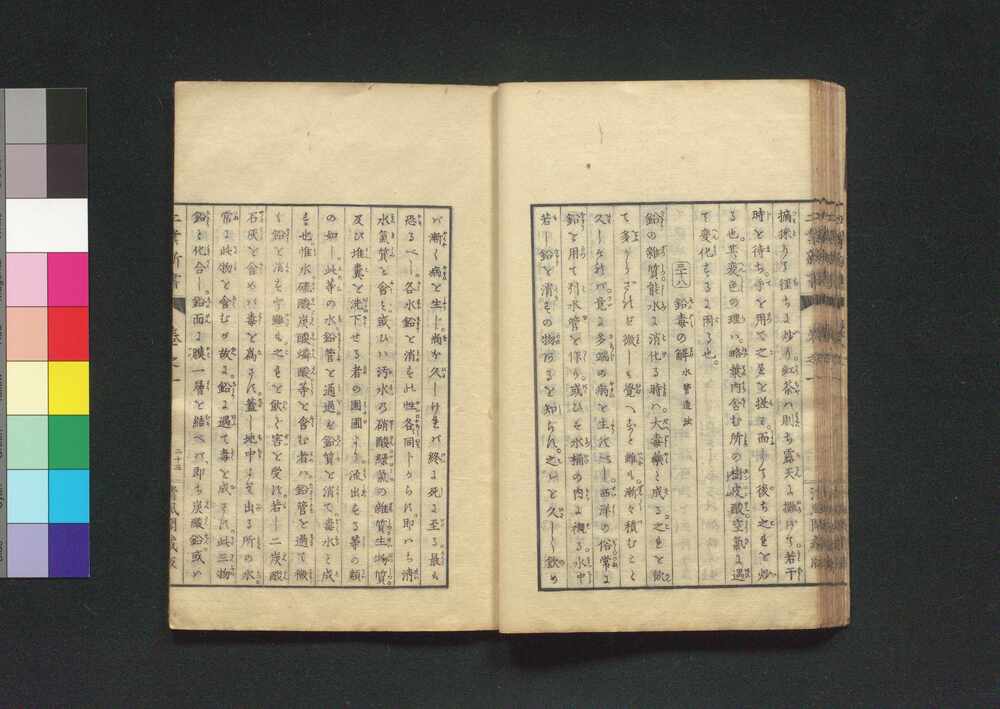 摘採りる徑ちよ炒り紅茶ハ則ち露天よ攤けて若干
時を待ち手を用て之を揉て而して後ち之を炒
る也其変色の理ハ略葉内含む所の樹皮酸空氣よ遇
て変化するよ因る也
三十八 鉛毒の解 水管造法
鉛の雜質能水よ消化る時ハ大毒藥と成る之を飲
て多からざれば微しも覺へずと雖も漸々積むこと
久しければ竟よ多端の病を生ずべし西洋の俗常よ
鉛を用て引水管を作り或ひは水桶の内よ襯る水中
若し鉛を消もの物あると知らん之れを久しく飲め
バ漸く病を生し病か久しければ終よ死よ至る最も
恐るべし各水鉛を消すに性各同トからず即いち淸
水氣質を含と或ひハ汚水の硝酸綠氣の雜質生物質
及び堆糞を洗下せる者の圃圃より流出する等の類
の如し此等の水鉛管を通過を鉛質を消て毒水と成
る也惟水硫酸炭酸燐酸等を含む者ハ鉛管を過て微
く鉛を消すを雖も之を飲く害を受ず若し二炭酸
石灰を含めバ毒と爲らず蓋し地中より出る所の水
常よ此物を含むが故よ鉛よ遇て毒を成さず此三物
鉛と化合し鉛面よ膜一層を結べバ即ち炭酸鉛或ハ